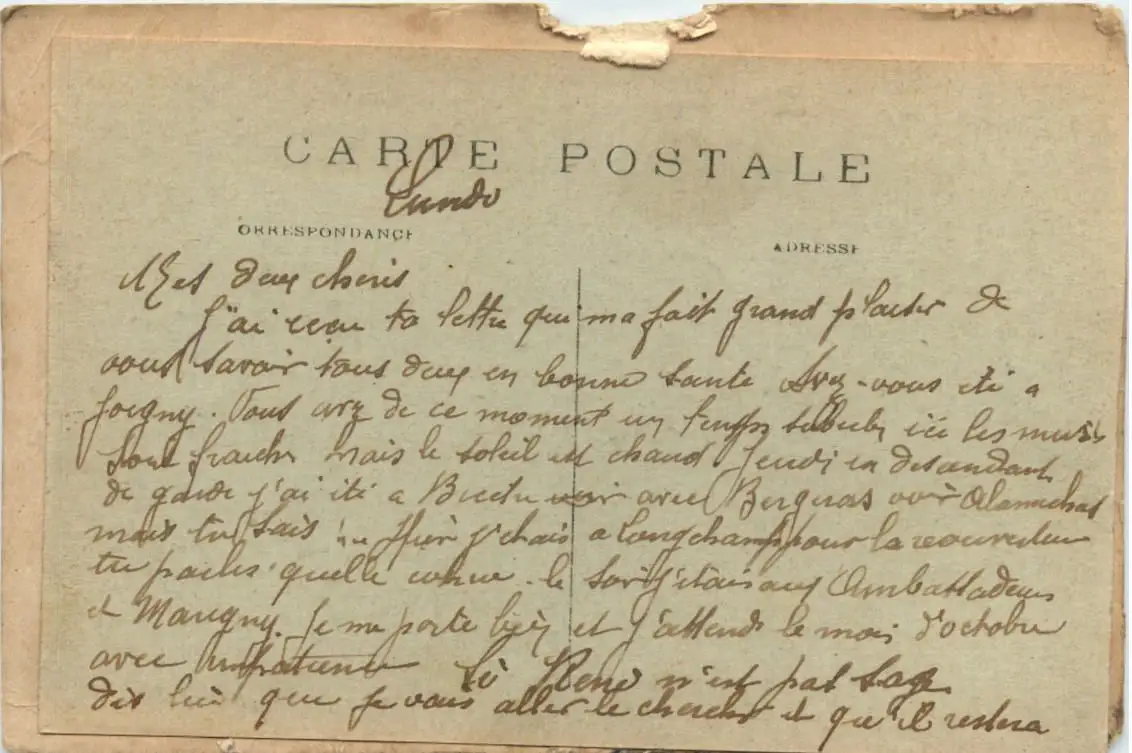 CARTE POSTALE
Lundi
CORRESPONDANCE
ADRESSE
Mes deux cheris
J'ai recu ta lettre qui ma fait grand plaisir de
vous savoir tous deux en bonne sante Avez-vous été a
Joigny. Vous avez de ce moment un temps ici les nuits
sont fraiches mais le soleil est chaud Jeudi en descendant
de garde j'ai été a voir avec Bergeras voir
mais tu sais Hier j'étais a Longchamp pour la reouverture
tu parles quelle le soir j'etais aux Ambassadeurs
et Marigny. Je me porte bien et j'attends le mois d'octobre
avec impatience Si René n'est pas sage
dis lui que je vais aller le chercher et qu'il restera